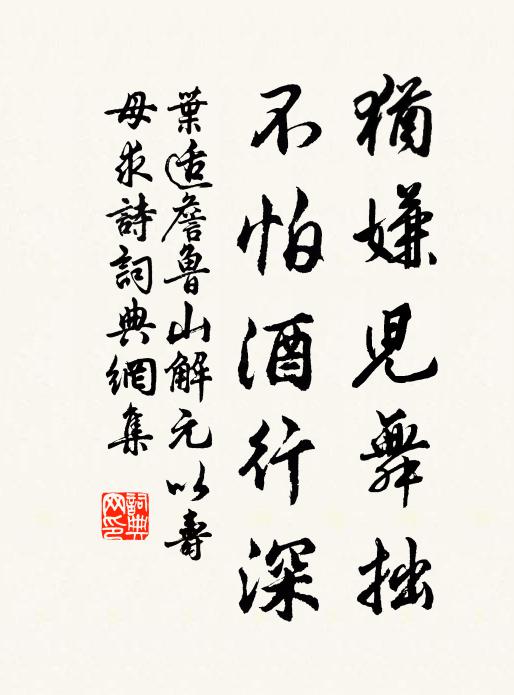 猶嫌兒舞拙
不怕酒行深
葉適詹魯山解元以壽
母求詩詞典網集
詞典網印